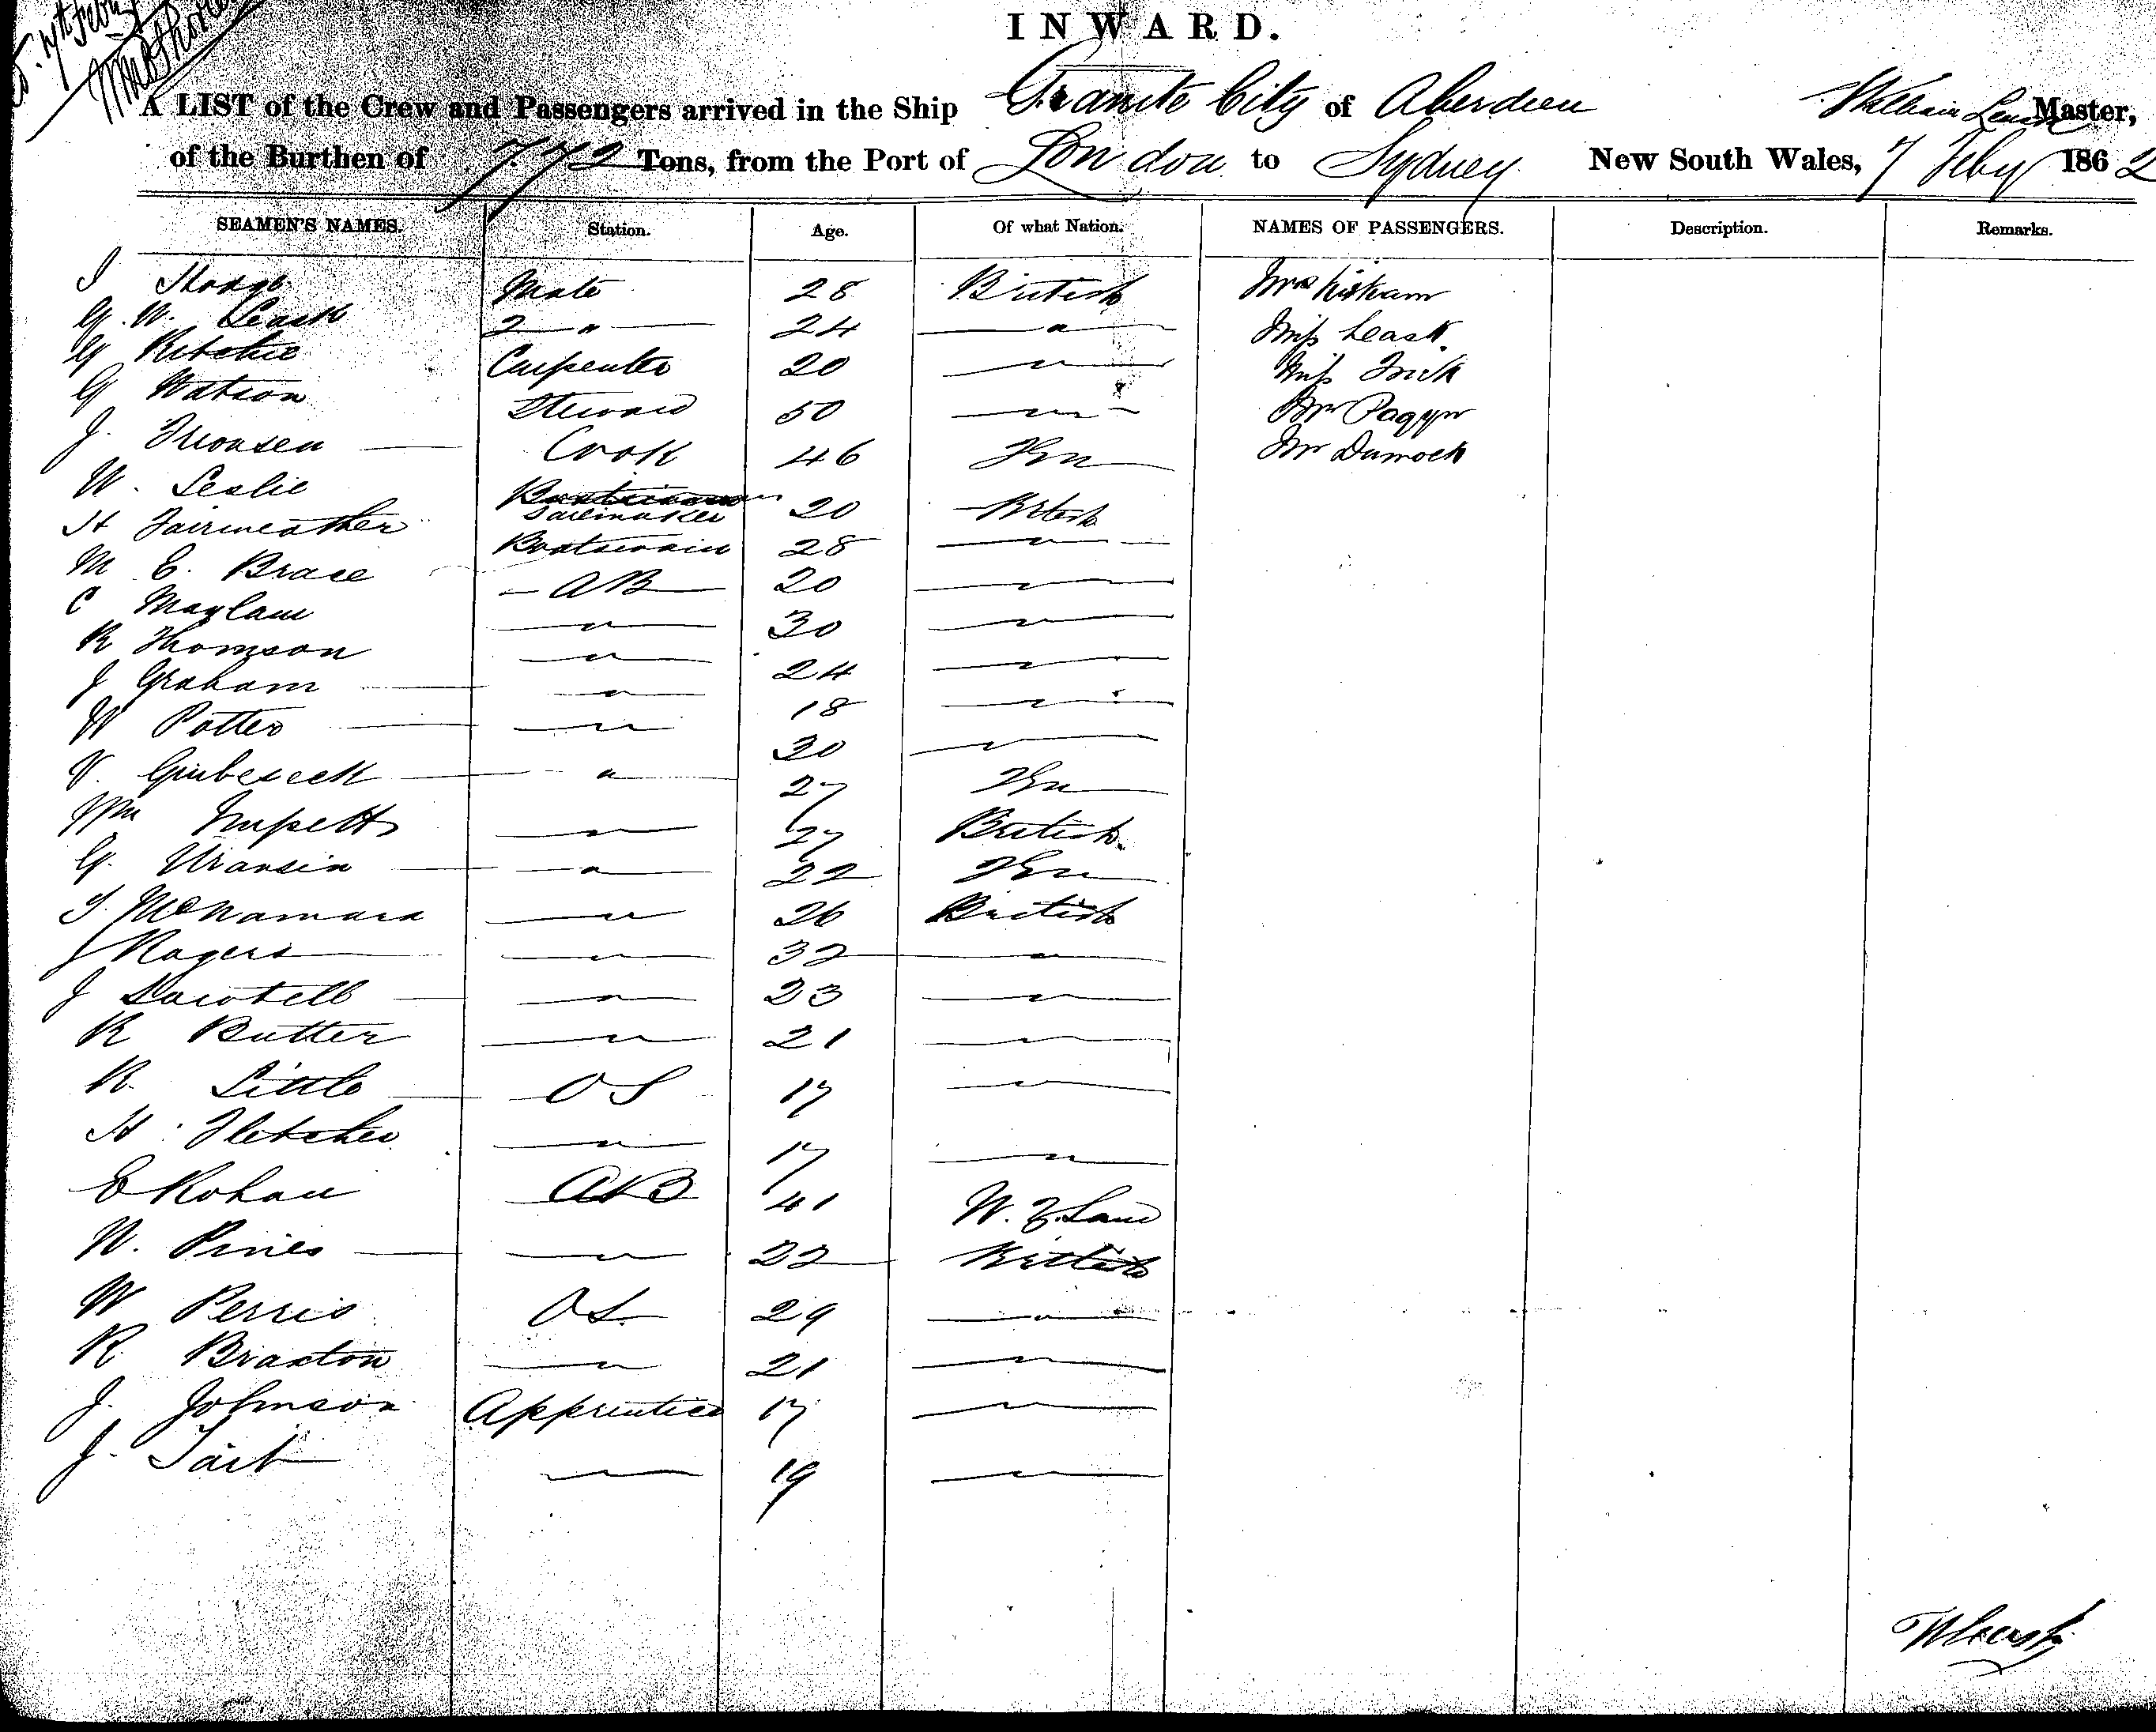 INWARD.
A LIST of the Crew and Passengers arrived in the Ship Granite City of Aberdeen William Leask Master,
of the Burthen of 772 Tons, from the Port of London to Sydney New South Wales, 7 Feby 1862
SEAMEN'S NAMES. Station. Age. Of what Nation. NAMES OF PASSENGERS. Description. Remarks.
Mate 28 British Mrs
G. W. Leask 2 " 24 " Miss Leask.
G Ritchie Carpenter 20 " Miss
G Watson Steward 50 " Mr
J. Cook 46 Fgn Mr
W. Leslie Sailmaker 20 British
H Fairweather Boatswain 28 "
M E. Brace AB 20 "
C Maylam " 30 "
R Thomson " 24 "
J Graham " 18 "
W Potter " 30 "
V. " 27 Fgn
Wm " 27 British
G. " 22 Fgn
T. McNamara " 26 British
J Rogers " 32 "
J Sawtell " 23 "
R Butter " 21 "
R. Little OS 17 "
H. Fletcher " 17 "
E Rohan AB 41 W.
W. Pines " 22 British
W Perris OS 29 "
R Braxton " 21 "
J. Johnson Apprentice 17 "
J. Tait " 19 "
W Leask